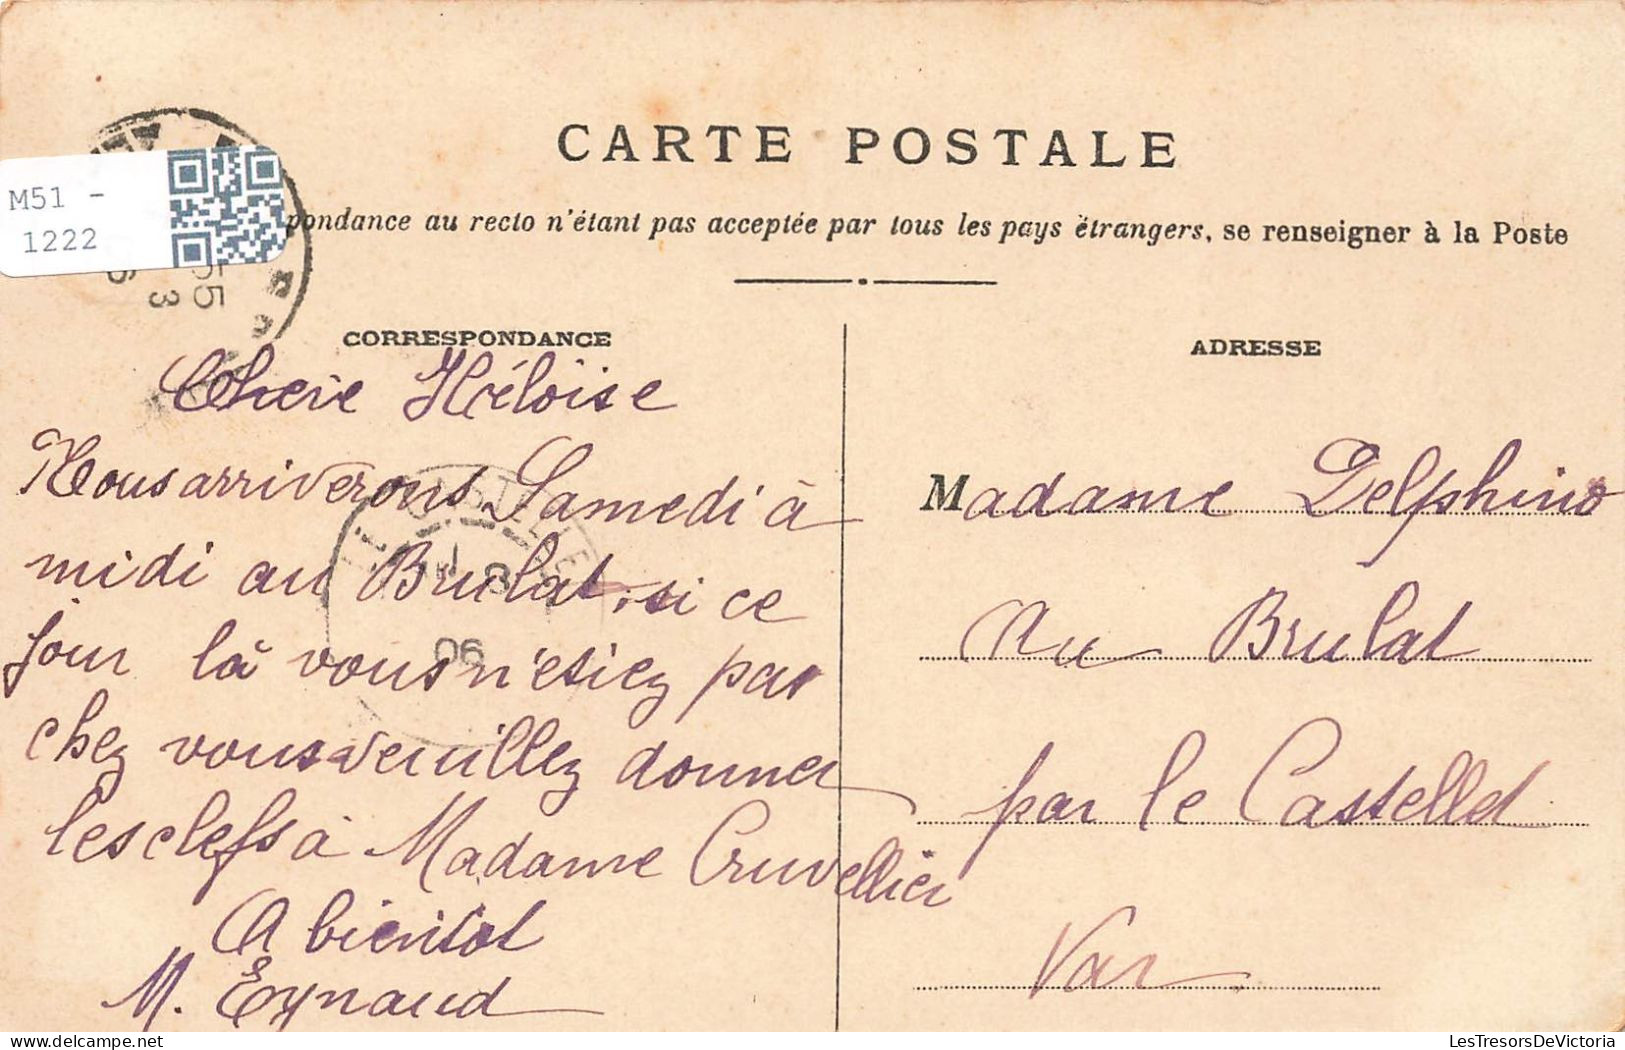 CARTE POSTALE
M51 -
1222
pondance au recto n'étant pas acceptée par tous les pays étrangers, se renseigner à la Poste
CORRESPONDANCE
Chere Héloise
Nous arriverons Samedi à
midi au Brulat, si ce
jour là vous n'etiez pas
chez vous veuillez donner
les clefs à Madame Cruvellier
A bientot
M. Eynaud
ADRESSE
Madame Delphino
Au Brulat
par le Castellet
Var
55
3
06
LesTresorsDeVictoria.com